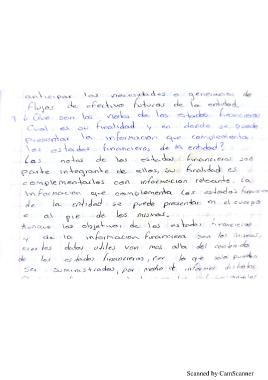 anticipar las necesidades o generacion de
flujos de efectivo futuros de la entidad.
¿Que son las notas de los estados financieros
Cual es su finalidad y en donde se puede
presentar la informacion que complementa
los estados financieros de la entidad?
Las notas de los estados financieros son
parte integrante de ellos, su finalidad es
complementarlos con informacion relevante. La
informacion que complementa los estados financieros
de la entidad se puede presentar en el cuerpo
o al pie de los mismos.
Aunque los objetivos de los estados financieros
y de la informacion financiera son los mismos,
ciertos datos utiles van mas alla del contenido
de los estados financieros, por lo que solo pueden
ser suministrados, por medio de informes distintos
Scanned by CamScanner